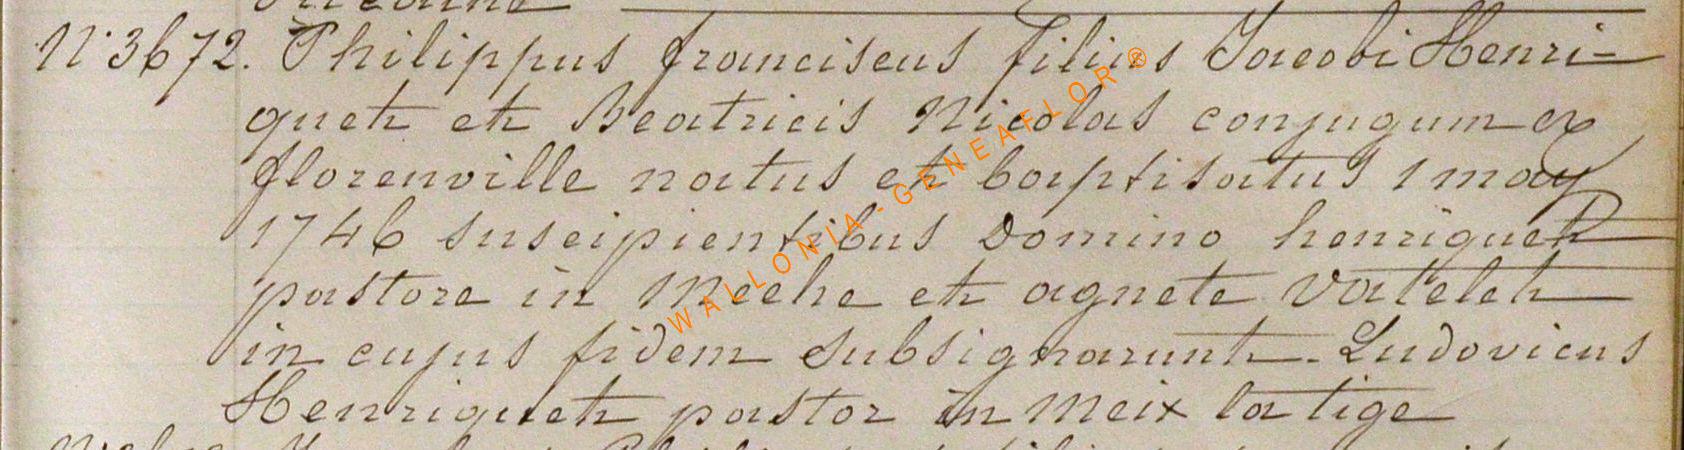 N° 3672. Philippus franciscus filius Jacobi Henri-
quet et Beatricis Nicolas conjugum ex
florenville natus et baptisatus 1 may
1746 suscipientibus Domino henriquet
pastore in Meche et agnete Vatelet
in cujus fidem subsignarunt. Ludovicus
Henriquet pastor in Meix la tige
WALLONIA - GENEAFLOR®